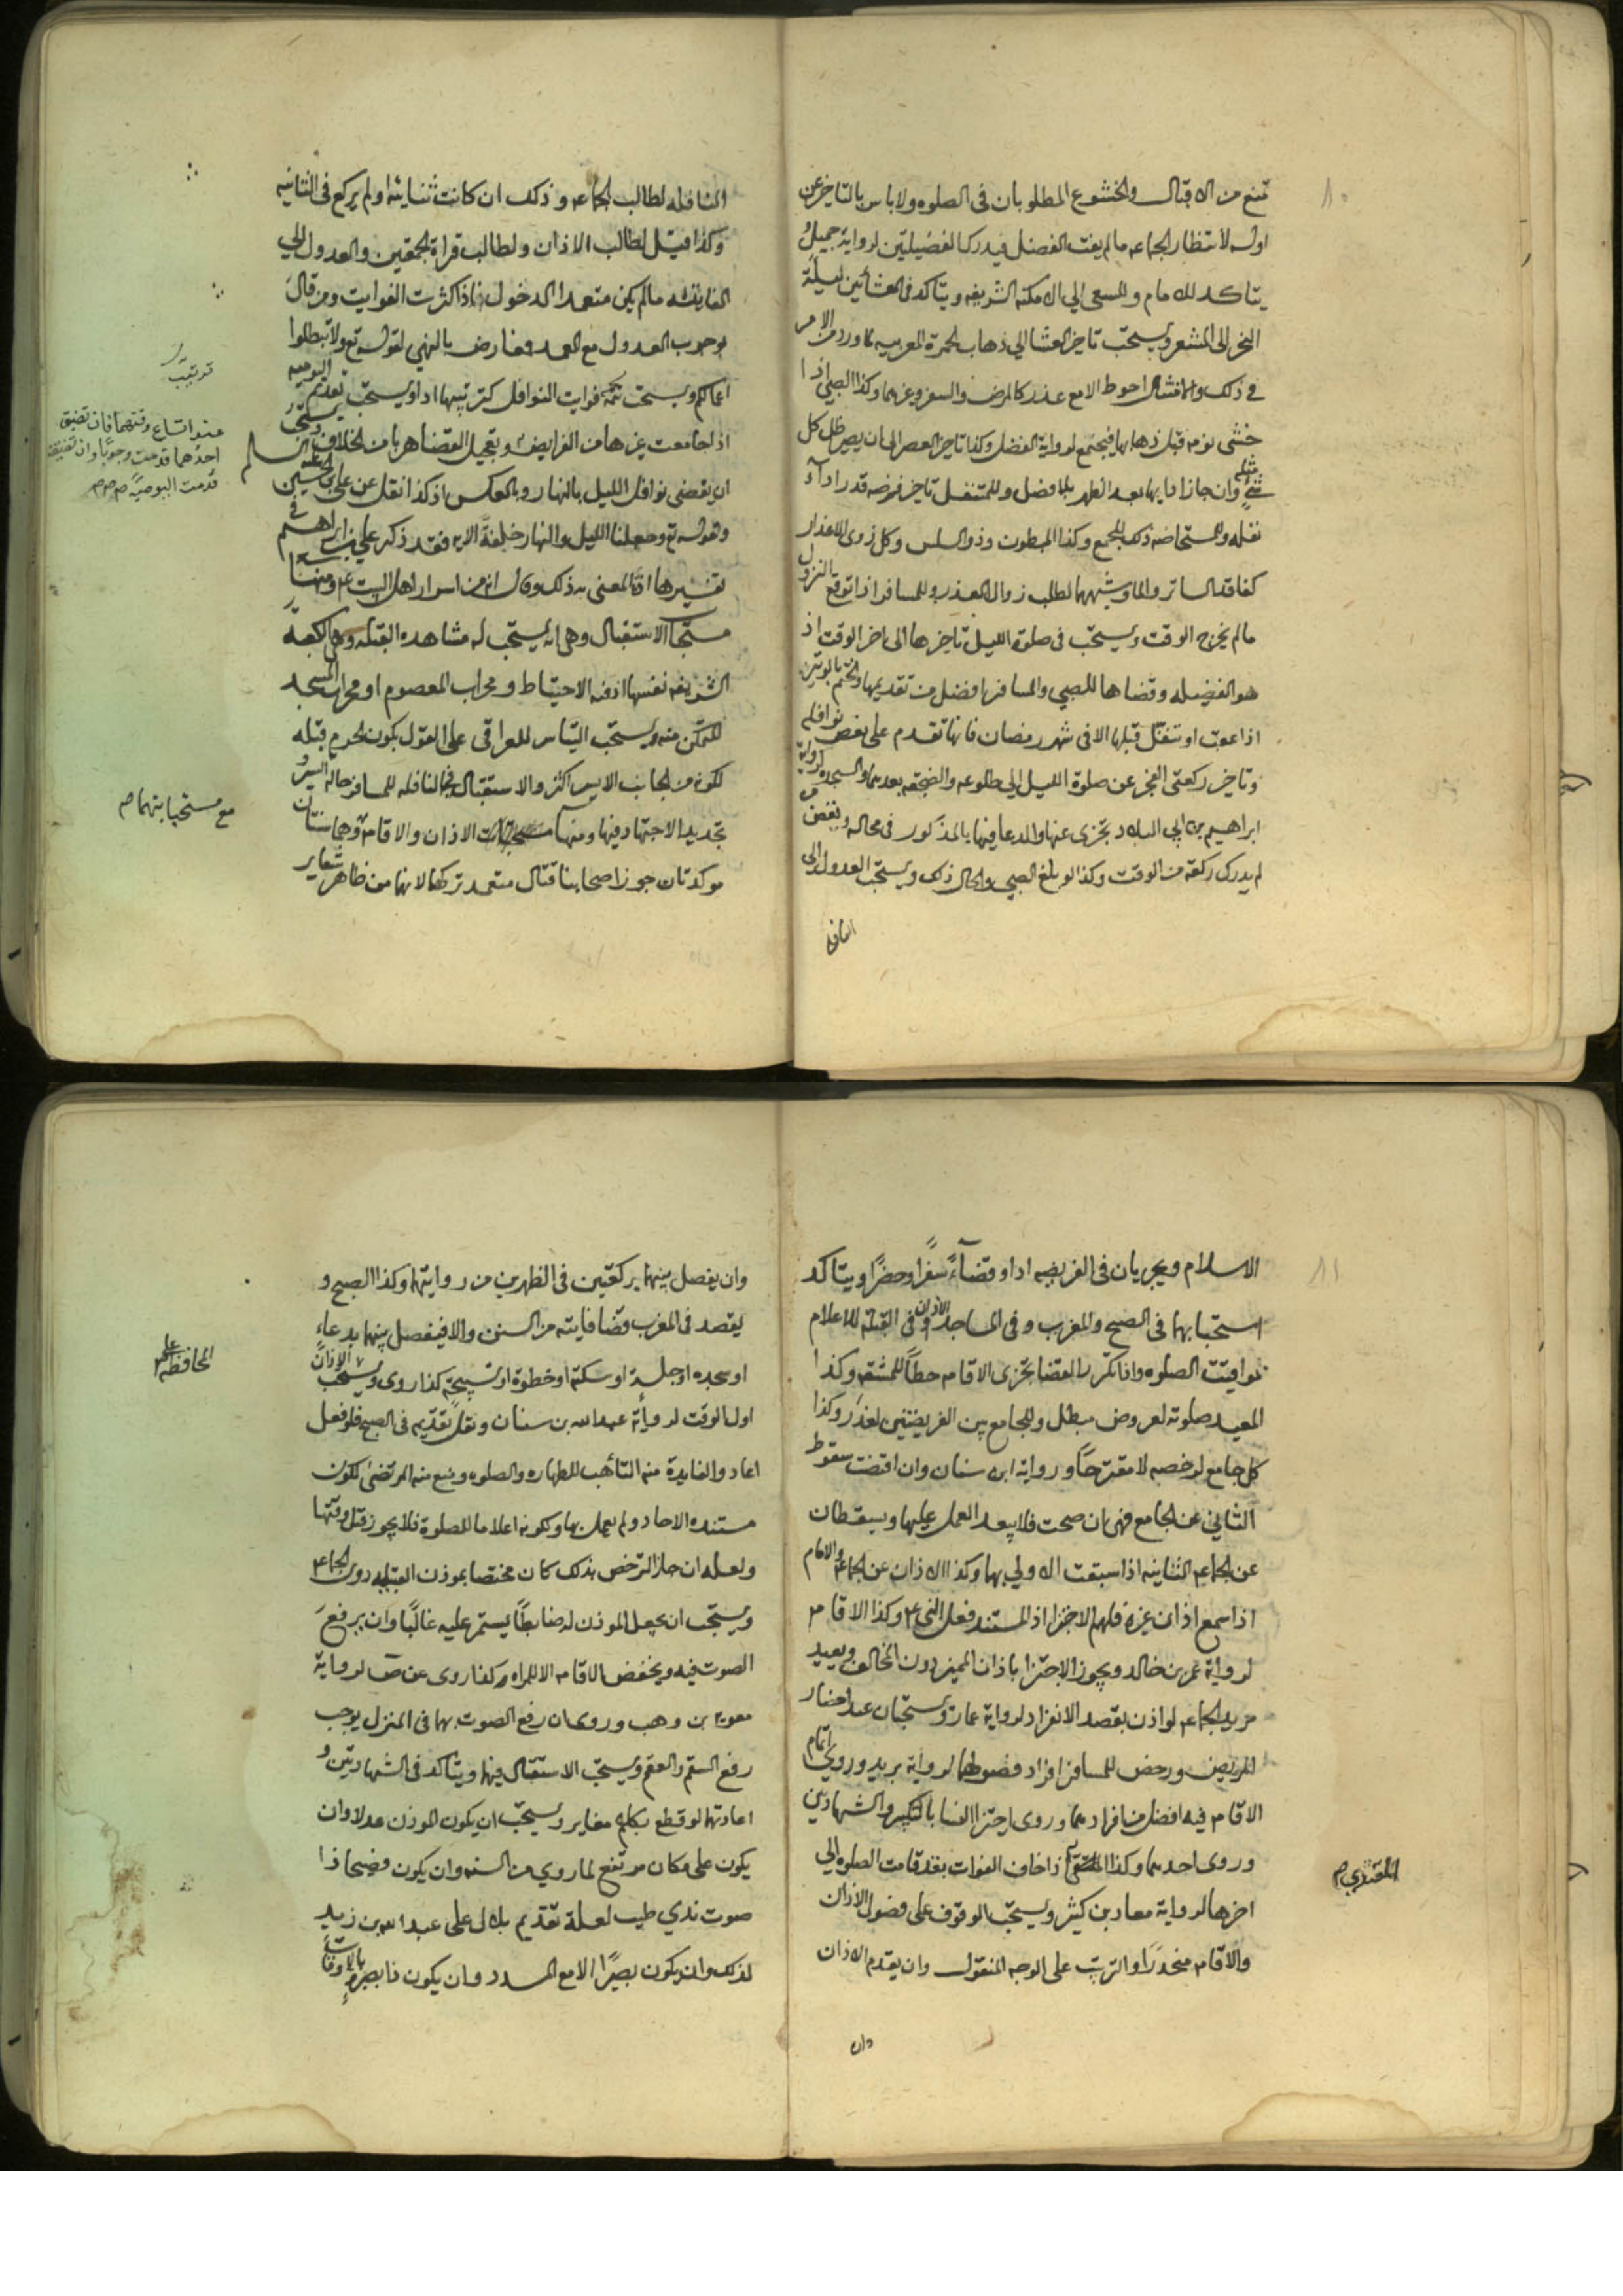 ٨٠
تمنع من الاقبال والخشوع المطلوبان فى الصلوه ولا باس بالتاخير عن
اوله لانتظار الجماعه مالم يفت الفضل فيدرك الفضيلتين لرواية جميل و
يتاكد للامام وللسعى الي الامكنه الشريفه ويتاكد فى العشائين ليلة
النحر الى المشعر ويستحب تاخير العشا الي ذهاب الحمرة المغربيه لما ورد من الامر
فى ذلك والامتثال احوط الا مع عذر كالمرض والسفر وغيرهما وكذا الصبي اذا
خشى نومه قبل ذهابها فيجمع لرواية الفضل وكذا تاخير العصر الى ان يصير ظل كل
شئ مثله وان جاز اتيانها بعد الظهر بلا فصل وللمتنفل تاخير فرضه قدر اداء
نفله وللمستحاضه ذلك للجمع وكذا المبطون وذو السلس وكل ذوى الاعذار
كفاقد الساتر والماء وشبههما لطلب زوال العذر وللمسافر اذا توقع النزول
مالم يخرج الوقت ويستحب فى صلوة الليل تاخيرها الى اخر الوقت اذ
هو الفضيله وقضاها للصبي والمسافر افضل من تقديمها والختم بالوتيرة
اذا عوت او تنفل قبلها الا فى شهر رمضان فانها تقدم على بعض نوافله
وتاخير ركعتى الفجر عن صلوة الليل الي طلوعه والضجعه بعدهما والسجده لرواية
ابراهيم بن ابي البلاد تجزى عنها والدعا فيها بالمذكور فى محاله ونقض من
لم يدرك ركعة من الوقت وكذا لو بلغ الصبي والحال ذلك ويستحب العدول الى
النافله
النافله لطالب الجماعه وذلك ان كانت ثنائيه او لم يركع فى الثانيه
وكذا قيل لطالب الاذان ولطالب قراة الجمعتين والعدول الي
الفايته مالم يكن متعمدا الدخول اذا كثرت الفوايت ومن قال
بوجوب العدول مع العمد معارض بالنهي لقوله تع ولا تبطلوا
اعمالكم ويستحب فوايت النوافل كترتيبها اداو يستحب تقديم اليوميه
ترتيب
عند اتساع وقتهما فان تضيق
احدهما قدمت وجوبًا وان تضيقتا
قدمت اليوميه صح
اذا جامعت غيرها من الفرايض وتعجيل القضا هربا من الخلاف ويستحب
ان يقضى نوافل الليل بالنهار وبالعكس اذ كذا نقل عن علي بن الحسين عليه السلم
وقوله تع وجعلنا الليل والنهار خلفة الايه فقد ذكر علي بن ابراهيم فى
تفسيرها ان المعنى به ذلك وقال انه من اسرار اهل البيت ع ومنها
مستحبات الاستقبال وهى انه يستحب له مشاهده القبله وهى الكعبة
الشريفه نفسها اذ فيه الاحتياط و محراب المعصوم او محراب المسجد
للمتمكن منه ويستحب التياسر للعراقى على القول بكون الحرم قبله
لكونه من الجانب الايسر اكثر والاستقبال فى النافله للمسافر حاله السير و
تجديد الاجتهاد فيها ومنها مستحبات الاذان والاقامه وهما سنتان
مع مستحباتهما صح
موكدتان جوز اصحابنا قتال متعمد تركهما لانهما من ظاهر شعاير
٨١
الاسلام ويجريان فى الفريضه اداو قضاءً سفرًا وحضرًا ويتاكد
استحبابهما فى الصبح والمغرب وفى المساجد والاذان فى القبلة للاعلام
لمواقيت الصلوه واذا تكرر القضا تجزى الاقامه حطًا للمشقه وكذا
المعيد صلوته لعروض مبطل وللجامع بين الفريضتين لعذر وكذا
كل جامع لرخصه لا مقترحًا ورواية ابن سنان وان اقتضت سقوط
الثاني عن الجامع فهى ان صحت فلا يبعد العمل عليها ويسقطان
عن الجماعه الثانيه اذا سبقت الاولي بهما وكذا الاذان عن الجماعه والامام
اذا سمع اذان غيره فلهم الاجتزا اذ المستند فعل النبي ع وكذا الاقامه
لرواية عمر بن خالد ويجوز الاجتزا باذان المميز دون المخالف ويعيد
مريد الجماعه لو اذن بقصد الانفراد لرواية عمار ويستحبان عند احضار
المريض ورخص للمسافر افراد فصولهما لرواية بريد وروي اتمام
الاقامه فيه افضل من افرادهما وروى اجتزا النسا بالتكبير والشهادتين
وروى احدهما وكذا المقتدي اذا خاف الفوات بقد قامت الصلوه الي
المقتدي صح
اخرها لرواية معاد بن كثير ويستحب الوقوف على فصول الاذان
والاقامه منحدرًا والترتيب على الوجه المنقول وان يقدم الاذان
وان
وان يفصل بينهما بركعتين فى الظهرين من روايتهما وكذا الصبح و
يقصد فى المغرب قضا فايته من السنن والا فيفصل بينهما بدعاء
او سجده او جلسة او سكتة او خطوة او تسبيحة كذا روى ويستحب الاذان
المحافظه على
اول الوقت لرواية عبد الله بن سنان ونقل تقديمه فى الصبح فلو فعل
اعاد والفايدة منه التاهب للطهاره والصلوه ومنع منه المرتضى لكون
مستنده الاحاد ولم يعمل بها ولكونه اعلاما للصلوة فلا يجوز قبل وقتها
ولعله ان جاز الترخص بذلك كان مختصا بموذن القبله دون الجماعه
ويستحب ان يجعل الموذن له ضابطًا يستمر عليه غالبًا وان يرفع
الصوت فيه ويخفض الاقامه الا للمراه وكذا روى عن ص لرواية
معويه بن وهب وروى ان رفع الصوت بهما فى المنزل يوجب
رفع السقم والعقم ويستحب الاستقبال فيهما ويتاكد فى الشهادتين و
اعادتهما لو قطع بكلام مغاير ويستحب ان يكون الموذن عدلا وان
يكون على مكان مرتفع لما روي من السنه وان يكون فصيحا ذا
صوت ندي طيب لعلة تقديم بلال على عبد الله بن زيد
لذلك وان يكون بصيرًا الا مع المسدد وان يكون ذا بصيرة بالاوقات